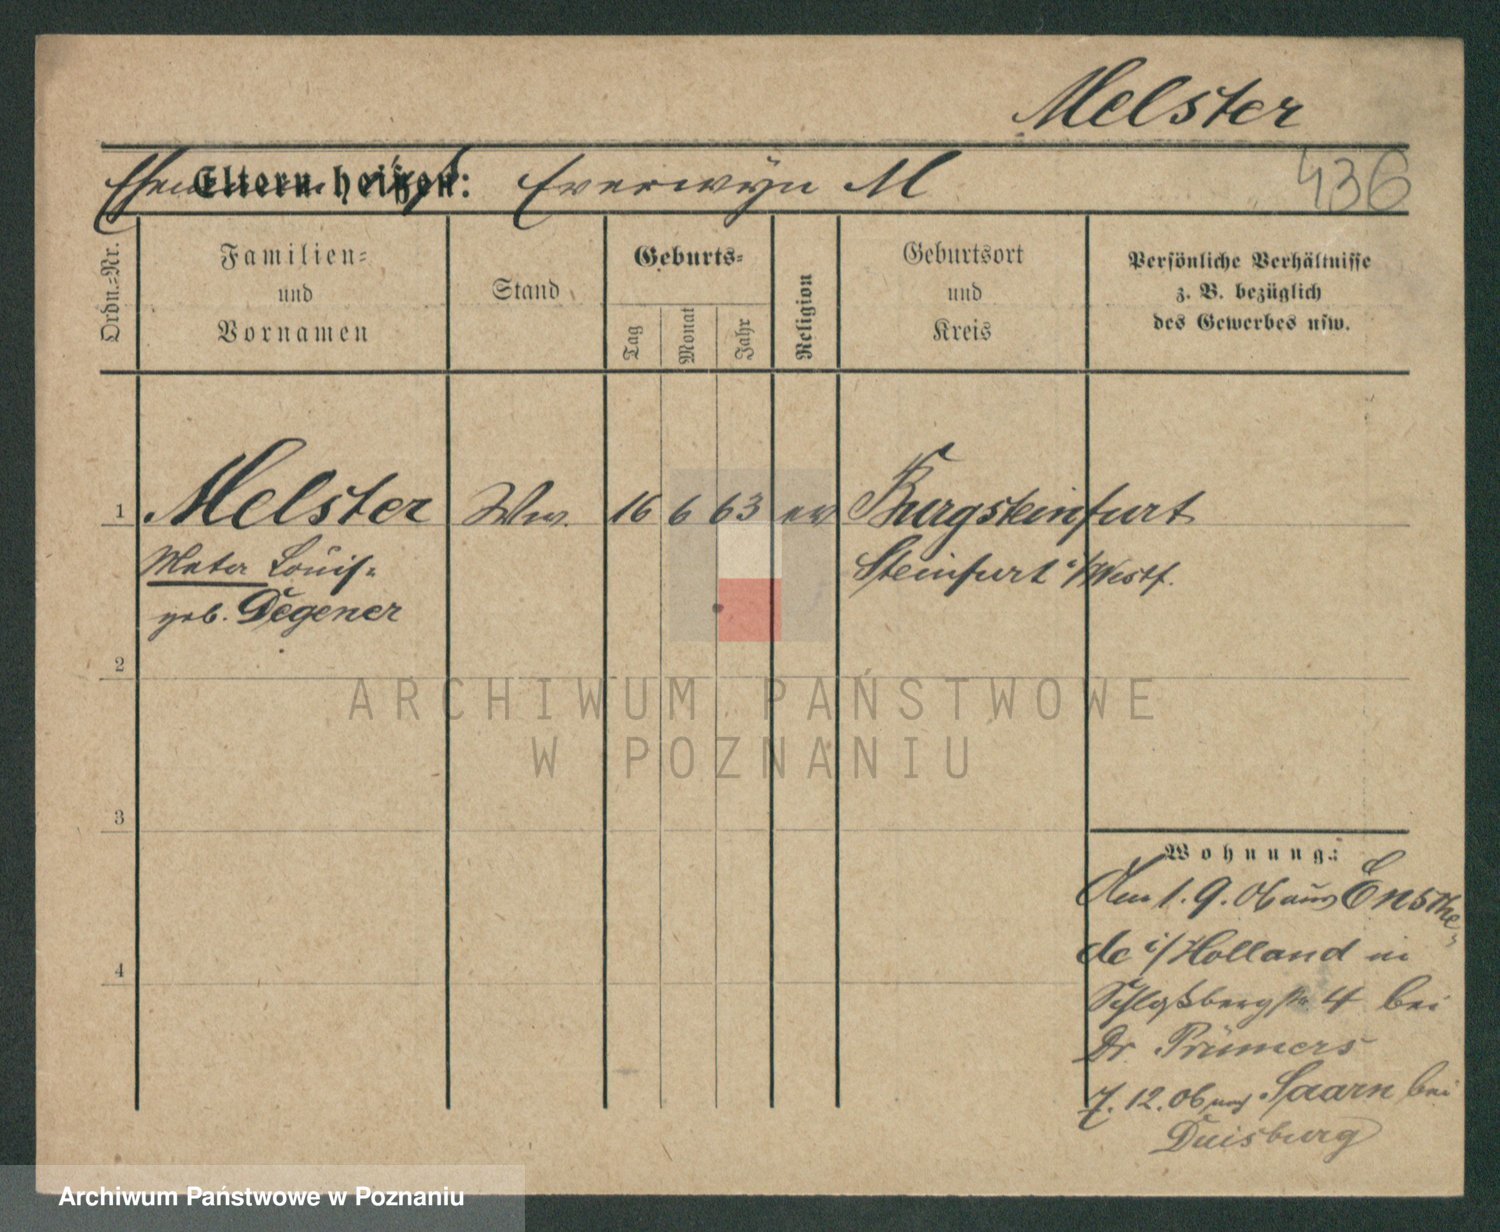 Melster
436
Eltern heißen: Everwÿn M
Ordn.-Nr.
Familien=
und
Vornamen
Stand
Geburts=
Tag
Monat
Jahr
Religion
Geburtsort
und
Kreis
Persönliche Verhältnisse
z. B. bezüglich
des Gewerbes usw.
1 Melster Ww. 16 6 63 ev Burgsteinfurt
Meta Louis= Steinfurt i/Westf.
geb. Degener
2
3
4
Wohnung:
Am 1. 9. 06 aus Ensche-
de i/Holland in
Schloßbergstr 4 bei
Dr. Prümers
7. 12. 06 nach Saarn bei
Duisburg
ARCHIWUM PAŃSTWOWE
W POZNANIU
Archiwum Państwowe w Poznaniu